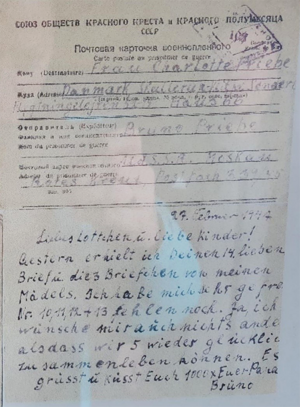 СОЮЗ ОБЩЕСТВ КРАСНОГО КРЕСТА и КРАСНОГО ПОЛУМЕСЯЦА
СССР
Почтовая карточка военнопленного
Carte postale du prisonnier de guerre
Кому (Destinataire) Frau Charlotte Friebe
Куда (Adresse) Danmark
Отправитель (Expéditeur) Bruno Friebe
Фамилия и имя военнопленного
Nom du prisonnier de guerre
U.d.S.S.R. Moskau
Adresse du prisonnier de guerre
Rotes Kreuz Postfach
27. Februar 1947
Liebes Lottchen u. liebe Kinder!
Gestern erhielt ich Deinen 14. lieben
Brief u die 3 Briefchen von meinen
Mädels. Ich habe mich sehr gefreut.
Nr. 10, 11, 12 + 13 fehlen noch. Ja, ich
wünsche mir auch nichts ande
als dass wir 5 wieder glücklich
zusammenleben können. Es
grüsst u küsst Euch 1000 x Euer Papa
Bruno